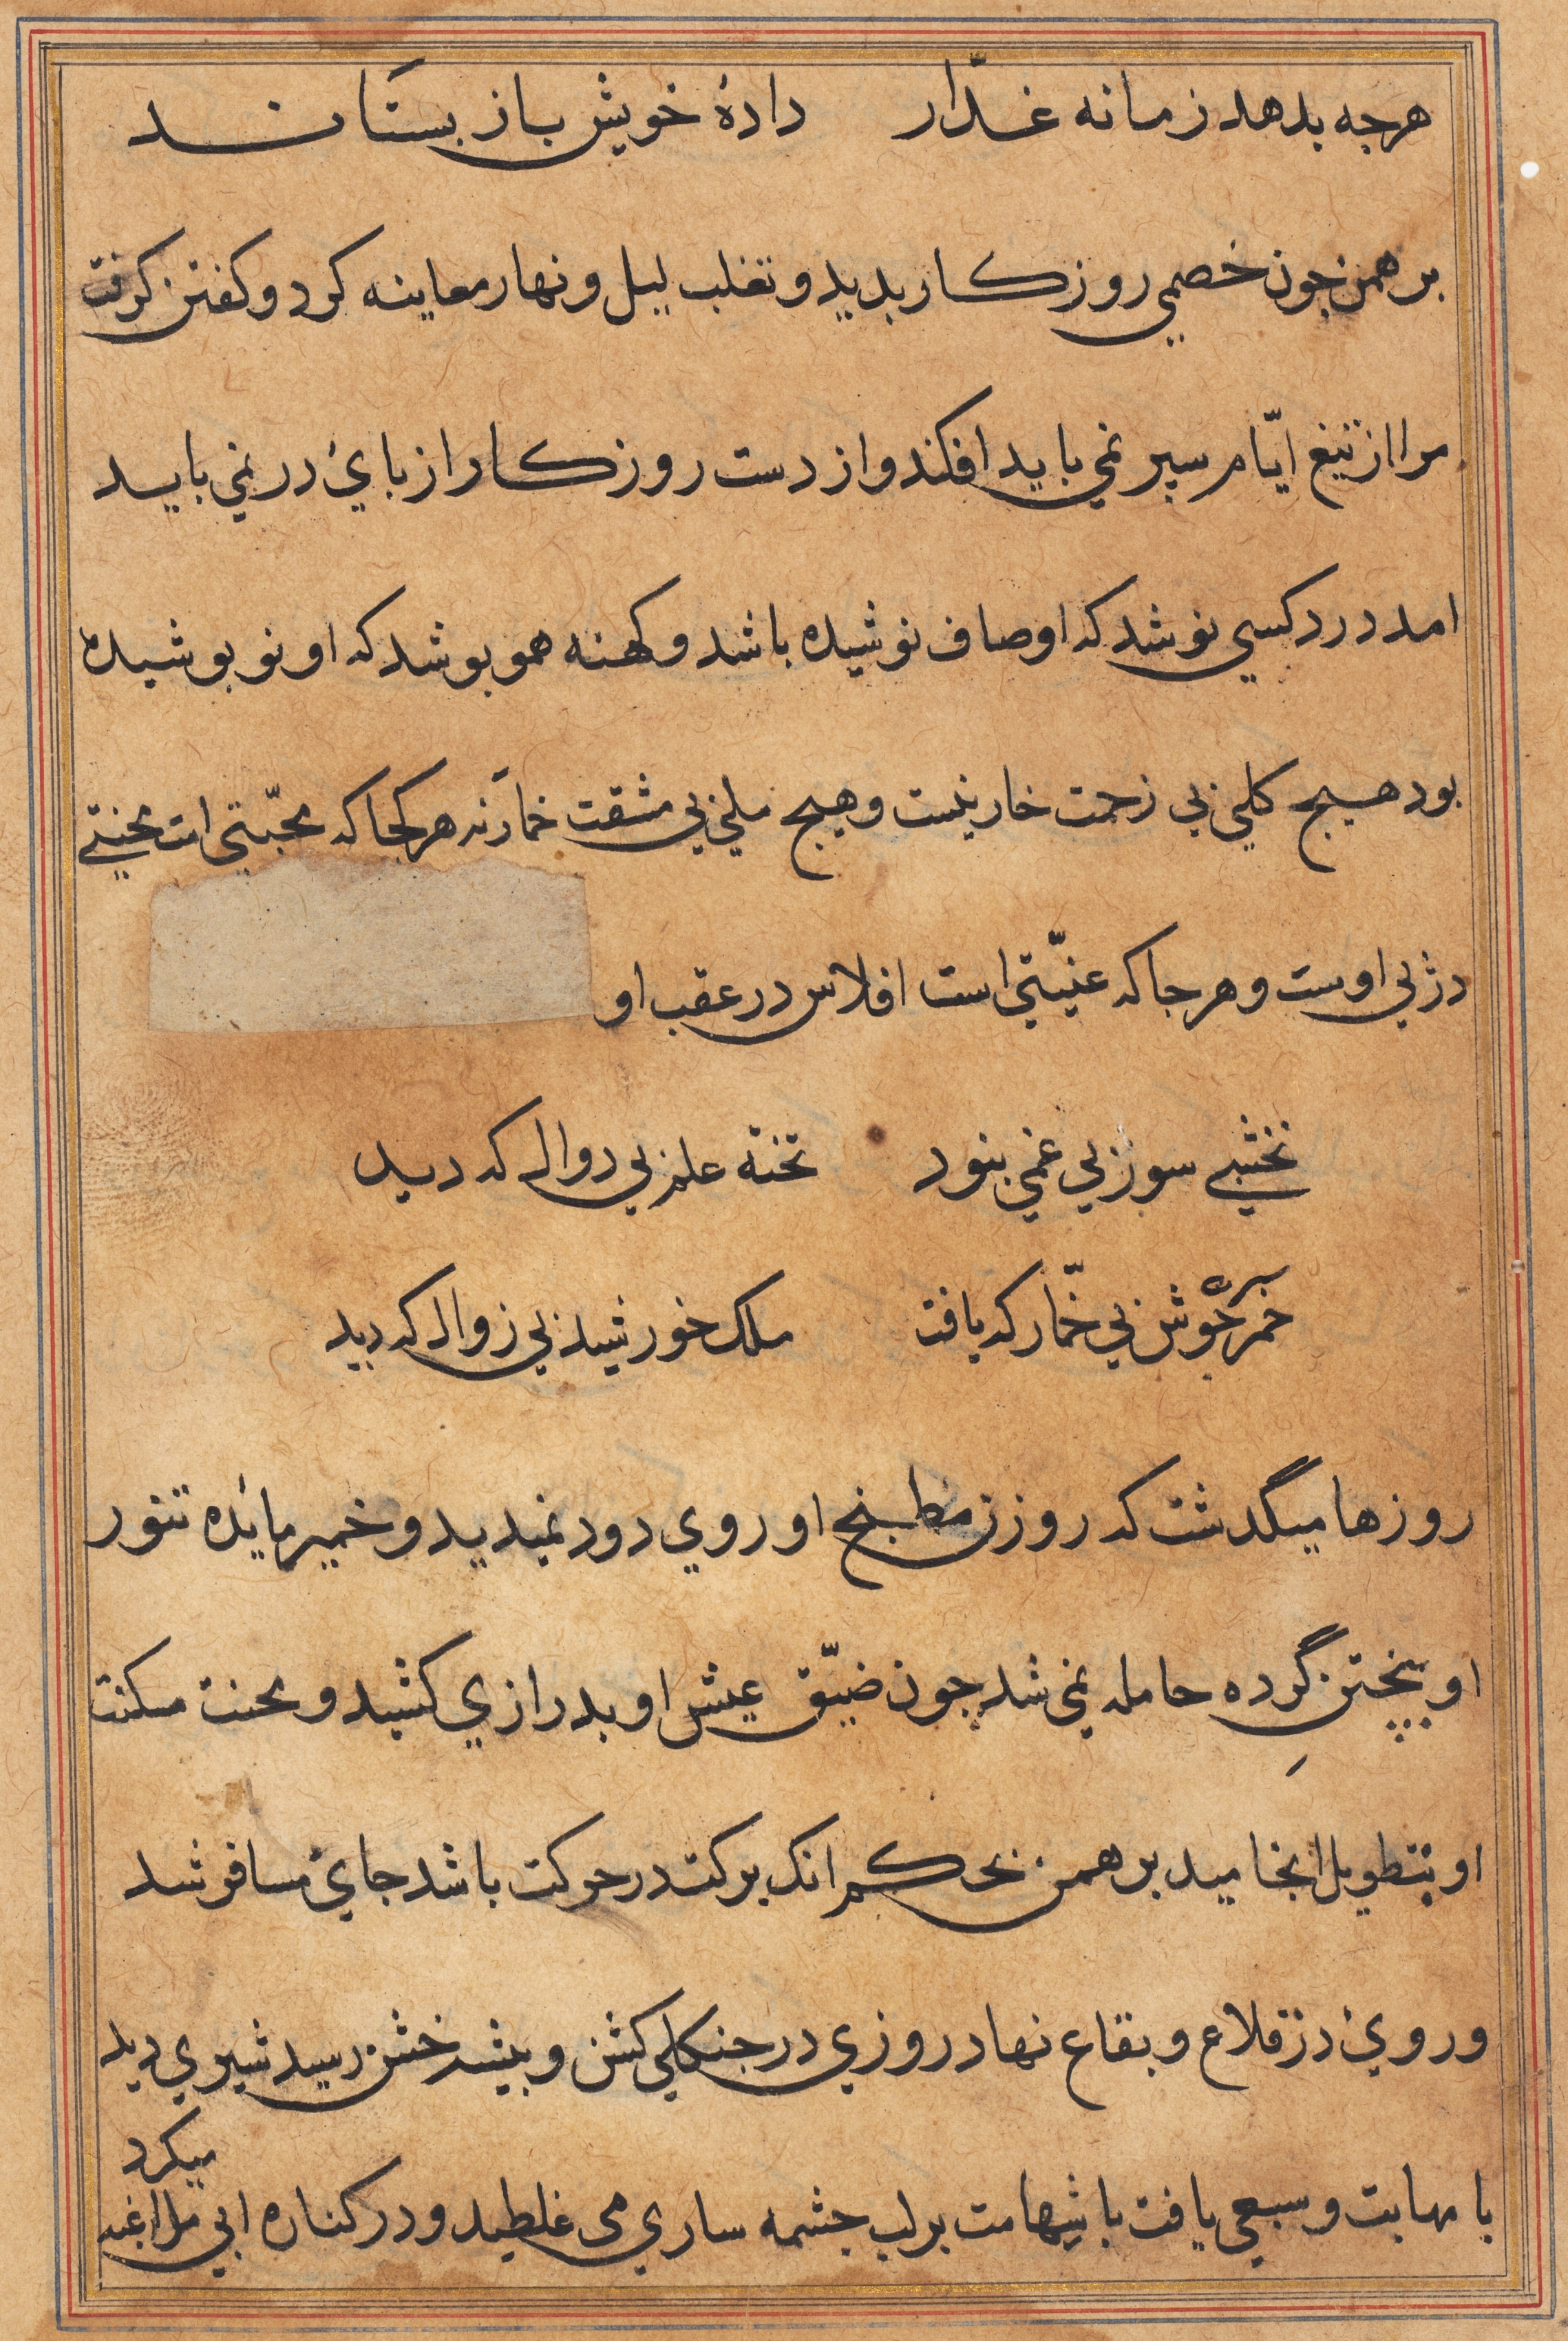 هرجه بدهد زمانه غدّار دادهٔ خویش باز بستاند
برهمن جون خصمی روزکار بدید و تغلب لیل و نهار معاینه کرد و کفتن کرفت
مرا از تیغ ایّام سپر نمی باید افکند و از دست روزکار از بایٔ در نمی باید
امد درد کسی نوشد که او صاف نوشیده باشد و کهنه همو بوشد که او نو بوشیده
بود هیج کلی بی زحمت خار نیست و هیج ملی بی مشقت خمار نه هر کجا که محبّتی است محنتی
در بی اوست و هر جا که عنیّتی است افلاس در عقب او
نخشبی سوز بی غمی بنود تخته علم بی دوال که دید
خمر خوش بی خمّار که یافت ملک خورشید بی زوال که دید
روزها میگدشت که روزن مطبخ او روی دود نمیدید و خمیر مائده تنور
او بپختن گرده حامله نمی شد جون ضیّق عیش او بدرازی کشید و محنت مسکنت
او بتطویل انجامید برهمن بحکم انک برکت در حرکت باشد جایٔ مسافر شد
و رویٔ در قلاع و بقاع نهاد روزی در جنکلی کشن و بیشه خشن رسید شیری دید
با مهابت و سبعی یافت با شهامت بر لب جشمه ساری می غلطید و در کناره ابی مراغه
میکرد